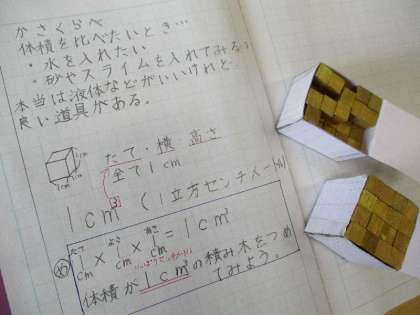 かさくらべ
体積を比べたいとき…
・水を入れたい
・砂やスライムを入れてみる
本当は液体などがいいけれど
良い道具がある。
1cm
1cm
1cm
たて・横 高さ
全て1cm
1cm³ (1立方センチメートル)
たて よこ 高さ
1cm × 1cm × 1cm = 1cm³
め
体積が1cm³の積み木をつめ
てみよう。